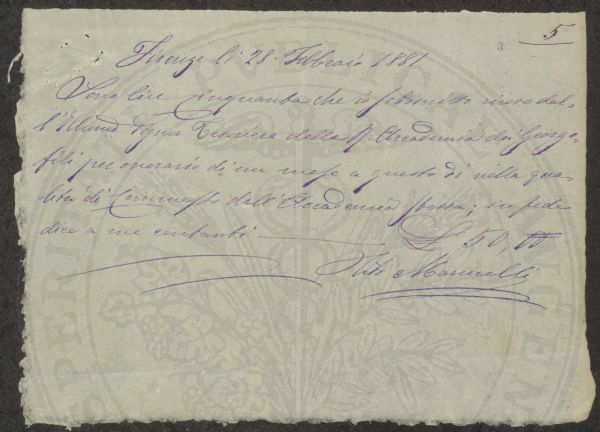 5
3
Firenze li 28. Febbraio 1881
Sono lire cinquanta che io sottoscritto ricevo dal-
l'Illmo Sigre Tesoriere della R. Accademia dei Georgo-
fili per onorario di un mese a questo dì nella qua-
lità di Commesso dell'Accademia stessa; in fede
dico a me contanti £ 50,00
Vito Marucelli
PUBLIC
PERI